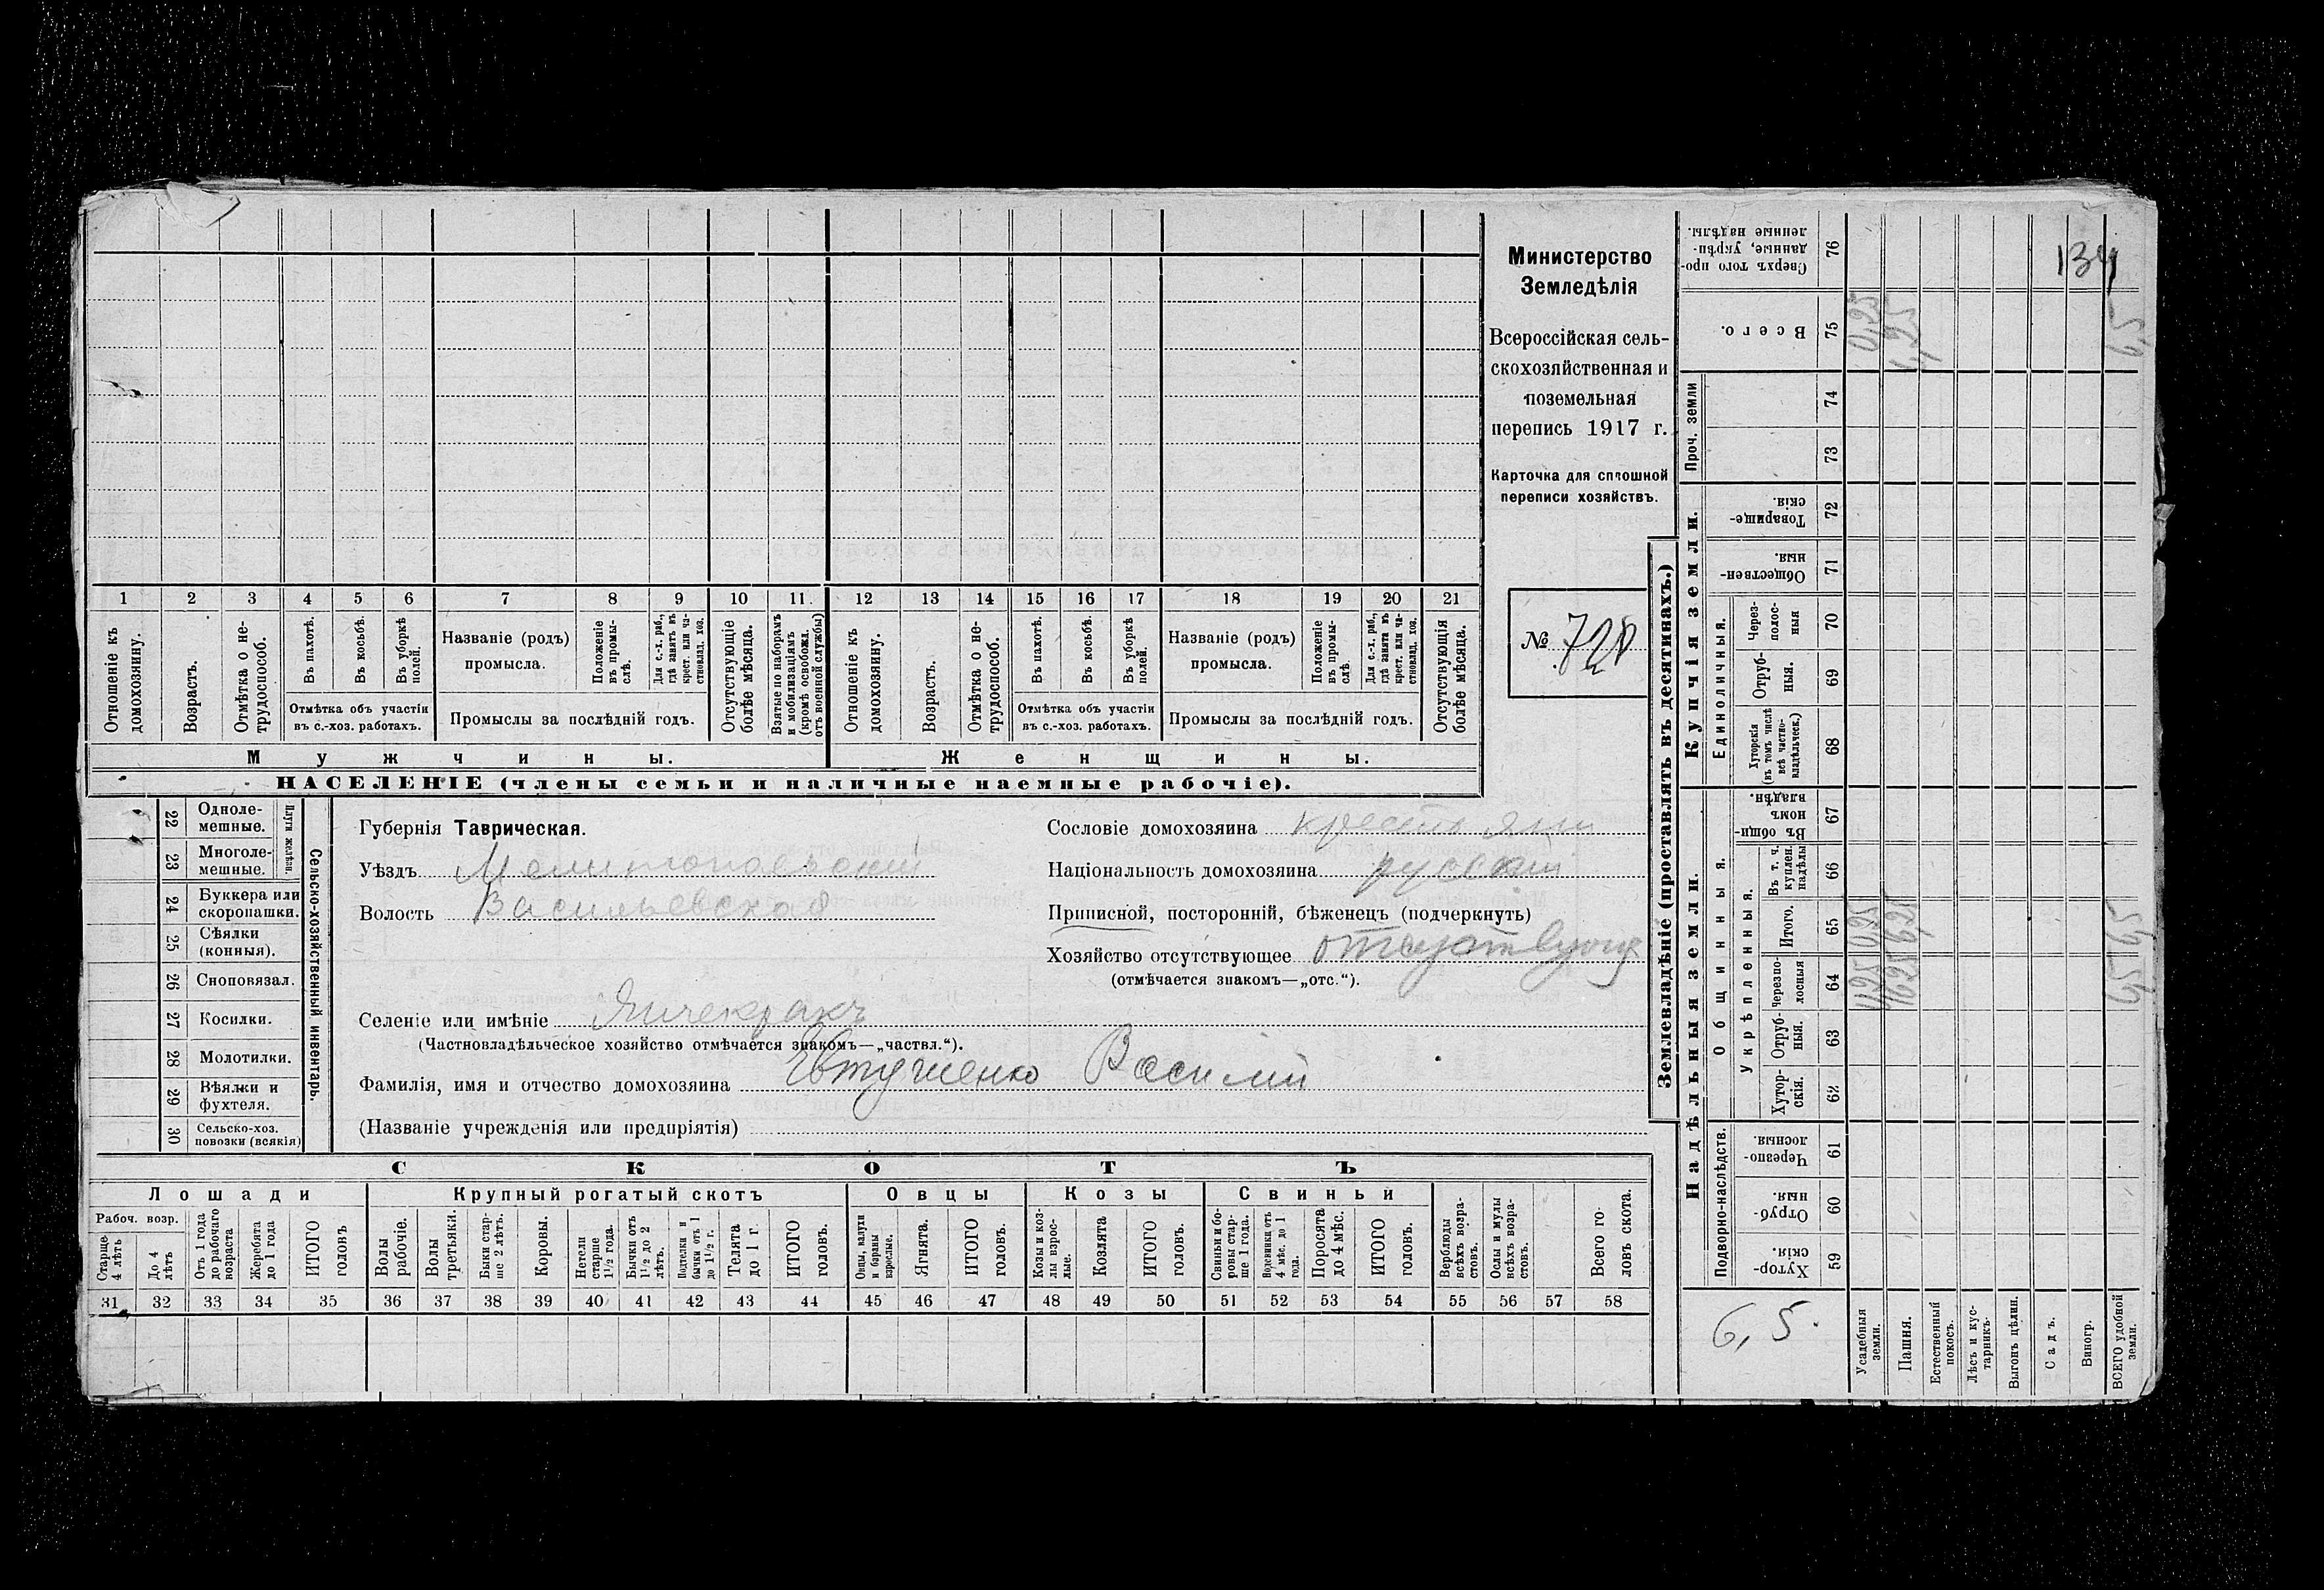 Министерство
Земледѣлія
Всероссійская сель-
скохозяйственная и
поземельная
перепись 1917 г.
Карточка для сплошной
переписи хозяйствъ.
№ 728
1 2 3 4 5 6 7 8 9 10 11 12 13 14 15 16 17 18 19 20 21
Отношеніе къ домохозяину.
Возрастъ.
Отмѣтка о не-трудоспособ.
Въ пахотѣ.
Въ косьбѣ.
Въ уборкѣ полей.
Отмѣтка объ участіи
въ с.-хоз. работахъ.
Названіе (родъ)
промысла.
Положеніе въ промы-слѣ.
Для с.-х. раб., гдѣ занятъ въ крест. или ча-стновлад. хоз.
Промыслы за послѣдній годъ.
Отсутствующіе болѣе мѣсяца.
Взятые по наборамъ и мобилизаціямъ (кромѣ освобожд. отъ военной службы)
Отношеніе къ домохозяину.
Возрастъ.
Отмѣтка о не-трудоспособ.
Въ пахотѣ.
Въ косьбѣ.
Въ уборкѣ полей.
Отмѣтка объ участіи
въ с.-хоз. работахъ.
Названіе (родъ)
промысла.
Положеніе въ промы-слѣ.
Для с.-х. раб., гдѣ занята въ крест. или ча-стновлад. хоз.
Промыслы за послѣдній годъ.
Отсутствующія болѣе мѣсяца.
Мужчины. Женщины.
НАСЕЛЕНІЕ (члены семьи и наличные наемные рабочіе).
22 Одноле-мешные.
23 Многоле-мешные.
Плуги желѣзн.
24 Буккера или скоропашки.
25 Сѣялки (конныя).
26 Сноповязал.
27 Косилки.
28 Молотилки.
29 Вѣялки и фухтеля.
30 Сельско-хоз. повозки (всякія)
Сельско-хозяйственный инвентарь.
Губернія Таврическая.
Уѣздъ Мелитопольский
Волость Васильевская
Сословіе домохозяина крестьянин
Національность домохозяина русский
Приписной, посторонній, бѣженецъ (подчеркнуть)
Хозяйство отсутствующее отсутствующ
(отмѣчается знакомъ—„отс.“).
Селеніе или имѣніе Янчекракъ
(Частновладѣльческое хозяйство отмѣчается знакомъ—„частвл.“).
Фамилія, имя и отчество домохозяина Евтушенко Василий
(Названіе учрежденія или предпріятія)
СКОТЪ
Лошади Крупный рогатый скотъ Овцы Козы Свиньи
Рабоч. возр.
Старше 4 лѣтъ
До 4 лѣтъ
Отъ 1 года до рабочаго возраста
Жеребята до 1 года
ИТОГО головъ
Волы рабочіе.
Волы третьяки.
Быки стар-ше 2 лѣтъ.
Коровы.
Нетели старше 1½ года.
Бычки отъ 1½ до 2 лѣтъ.
Подтелки и бычки отъ 1 до 1½ г.
Телята до 1 г.
ИТОГО головъ.
Овцы, валухи и бараны взрослые.
Ягнята.
ИТОГО головъ.
Козы и коз-лы взрос-лые.
Козлята
ИТОГО головъ.
Свиньи и бо-ровы стар-ше 1 года.
Подсвинки отъ 4 мѣс. до 1 года.
Поросята до 4 мѣс.
ИТОГО головъ.
Верблюды всѣхъ возра-стовъ.
Ослы и мулы всѣхъ возра-стовъ.
Всего го-ловъ скота.
31 32 33 34 35 36 37 38 39 40 41 42 43 44 45 46 47 48 49 50 51 52 53 54 55 56 57 58
Землевладѣніе (проставлять въ десятинахъ.)
Надѣльныя земли. Купчія земли. Проч. земли
Подворно-наслѣдств.
Общинныя.
Укрѣпленныя.
Единоличныя.
Хутор-скія. 59
Отруб-ныя. 60
Черезпо-лосныя. 61
Хутор-скія. 62
Отруб-ныя. 63
Черезпо-лосныя 64
Итого. 65
Въ т. ч. куплен. надѣлы 66
Въ общи-номъ владѣн. 67
Хуторскія (въ томъ числѣ всѣ частно-владѣльческ.) 68
Отруб-ныя. 69
Через-полос-ныя 70
Обществен-ныя 71
Товарище-скія. 72
73
74
Всего. 75
Сверхъ того про-данные, укрѣп-ленные надѣлы. 76
134
0,25 6,25 6,5
6,5.
Усадебныя земли.
Пашня.
Естественный покосъ.
Лѣсъ и кус-тарникъ.
Выгонъ цѣлин.
Садъ.
Виногр.
ВСЕГО удобной земли.